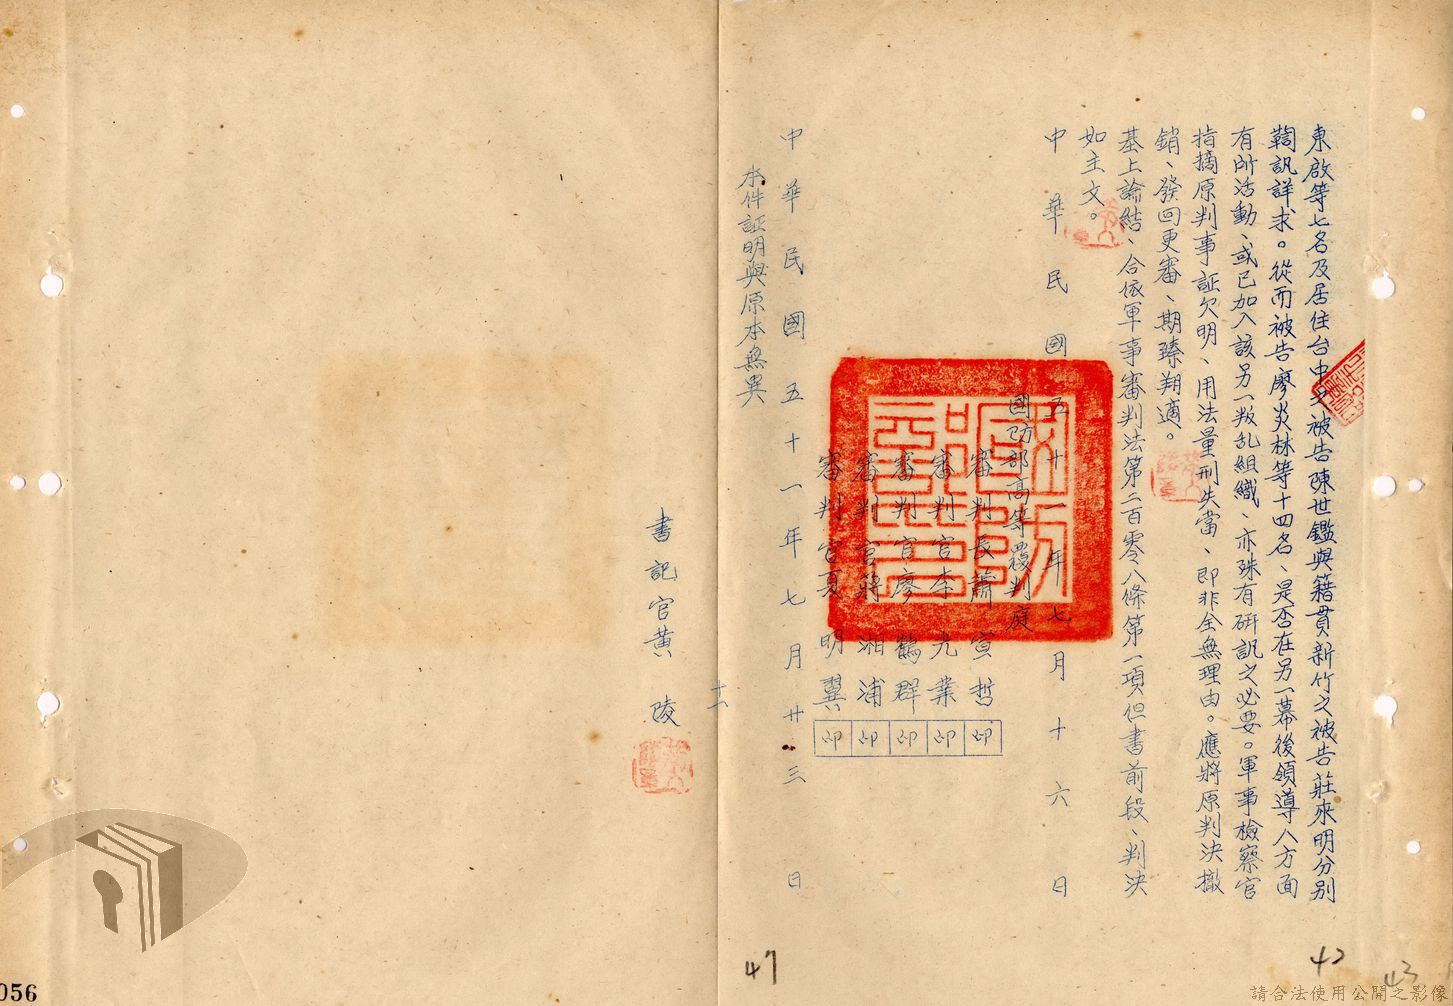 東啟等七名及居住台中之被告陳世鑑與籍貫新竹之被告莊來明分別
鞫訊詳求。從而被告廖炎林等十四名、是否在另一幕後領導人方面
有所活動、或已加入該另一叛乱組織、亦殊有研訊之必要。軍事檢察官
指摘原判事証欠明、用法量刑失當、即非全無理由。應將原判決撤
銷、發回更審、期臻翔適。
基上論結、合依軍事審判法第二百零八條第一項但書前段、判決
如主文。
中華民國五十一年七月十六日
國防部高等覆判庭
審判長蕭宣哲 印
審判官李光業 印
審判官廖鶴群 印
審判官蔣湘浦 印
審判官夏明翼 印
中華民國五十一年七月廿三日
本件証明與原本無異
書記官黃陵
十一
47
42
43
056
請合法使用公開之影像